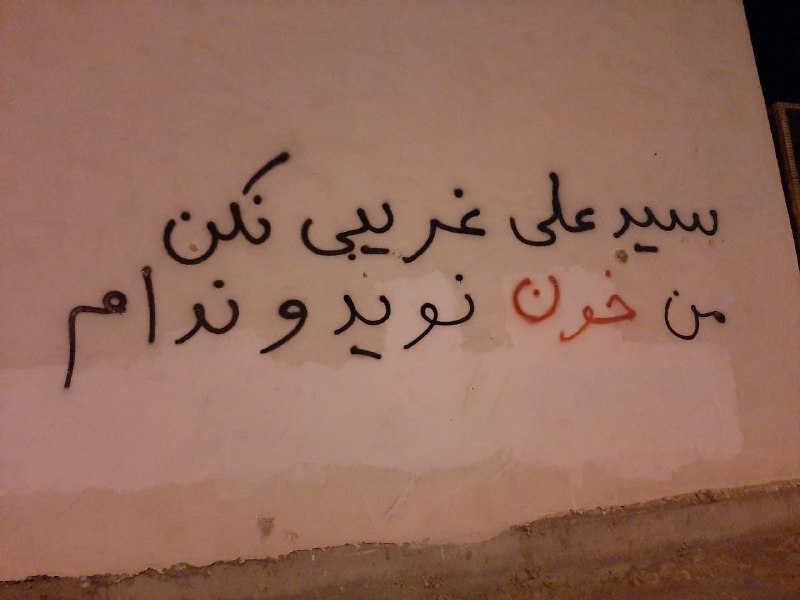 سید علی غریبی نکن
من خون نوید و ندام